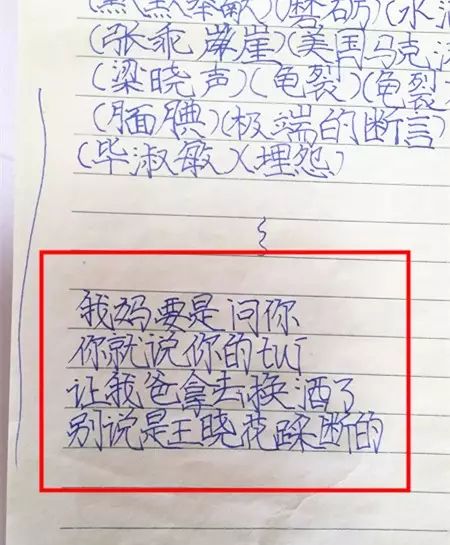 (磨砺)(水
(张乖崖)(美国马克
(梁晓声)(龟裂)(龟裂
(腼腆)(极端的断言)
(毕淑敏)(埋怨)
我妈要是问你
你就说你的tuǐ
让我爸拿去换酒了
别说是王晓花踩断的